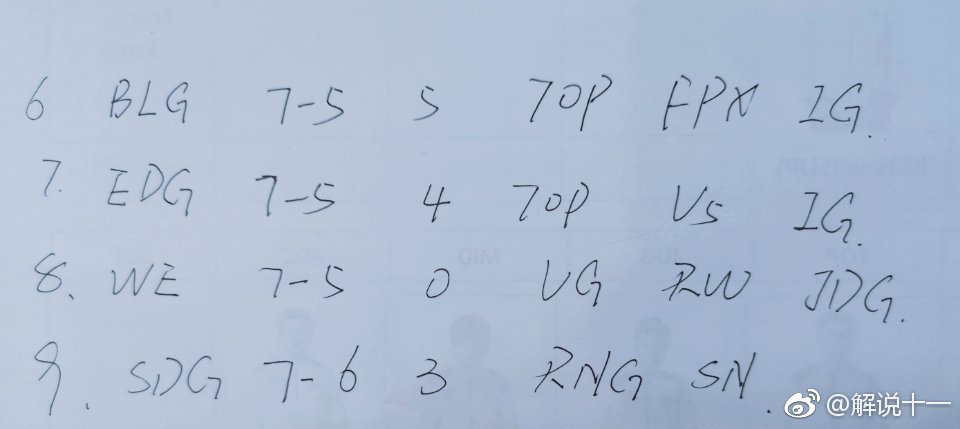 6 BLG 7-5 5 TOP FPX IG.
7. EDG 7-5 4 TOP V5 IG.
8. WE 7-5 0 VG RW JDG.
9. SDG 7-6 3 RNG SN.
@解说十一